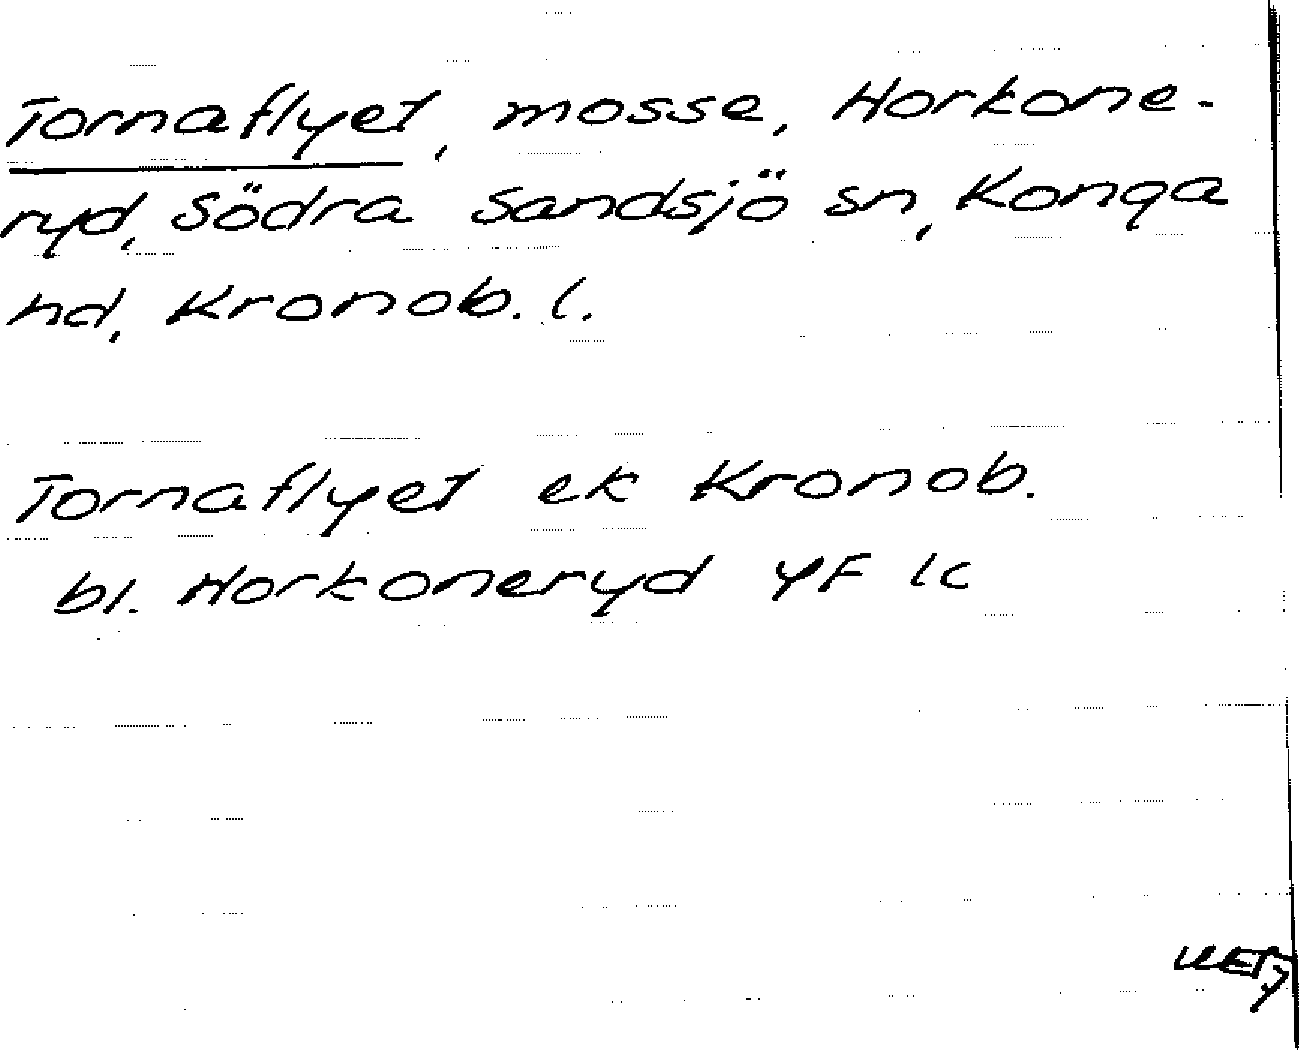 Tornaflyet, mosse, Horkone-
ryd, Södra Sandsjö sn, Konga
hd, Kronob. l.
Tornaflyet ek Kronob.
bl. Horkoneryd YF 1c